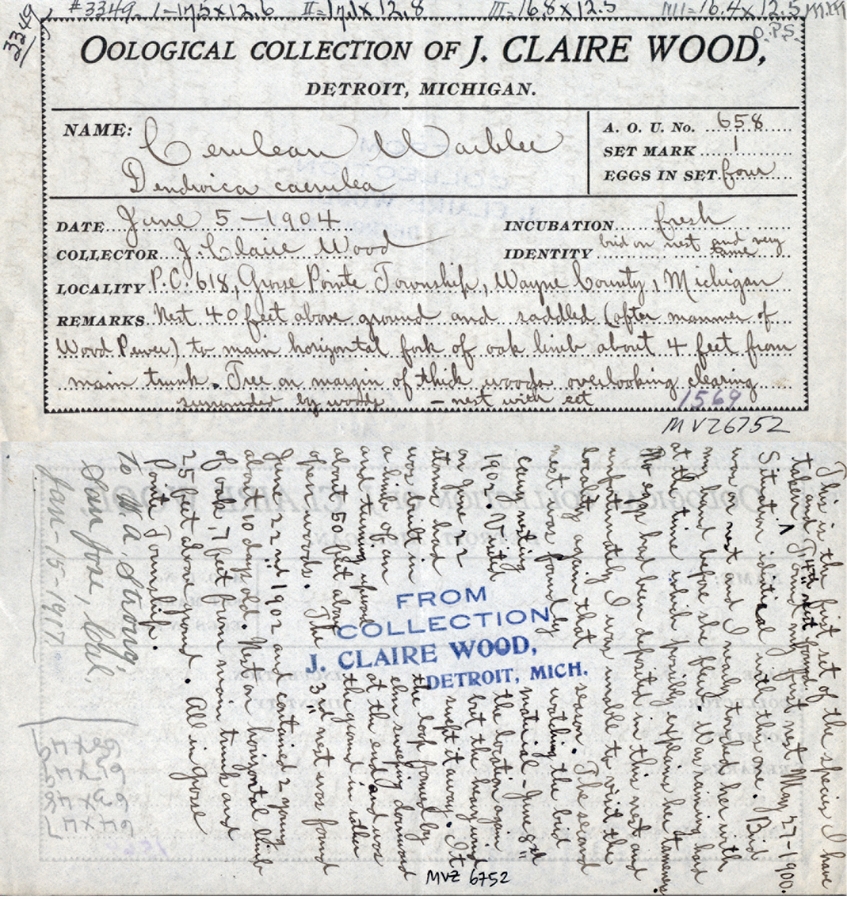 3349
#3349. I=17.5x12.6 II=17.1x12.8 III=16.8x12.5 IIII=16.4x12.5 mm
O.P.S.
OOLOGICAL COLLECTION OF J. CLAIRE WOOD,
DETROIT, MICHIGAN.
NAME: Cerulean Warbler
Dendroica caerulea
A. O. U. No. 658
SET MARK 1
EGGS IN SET four
DATE June 5-1904 INCUBATION fresh
COLLECTOR J. Claire Wood IDENTITY bird on nest and very tame
LOCALITY P.C. 618, Grosse Pointe Township, Wayne County, Michigan
REMARKS Nest 40 feet above ground and saddled (after manner of
Wood Pewee) to main horizontal fork of oak limb about 4 feet from
main trunk. Tree on margin of thick woods overlooking clearing
surrounded by woods - nest with set 1569
MVZ 6752
This is the first set of the species I have
taken ^ 4th nest found Found my first nest May 27-1900.
Situation identical with this one. Bird
was on nest and I nearly touched her with
my hand before she flew. Was raining hard
at the time which possibly explains her tameness.
No eggs had been deposited in this nest and
unfortunately I was unable to visit the
locality again that season. The second
nest was found by watching the bird
carry nesting material - June 8th
1902. Visited the location again
on June 22 but the heavy wind
storm had swept it away. It
was built in the loop formed by
a limb of an elm sweeping downward
and turning upward at the end and was
about 50 feet above the ground in rather
open woods. The 3rd nest was found
June 22nd 1902 and contained 2 young
about 10 days old. Nest on horizontal limb
of oak, 7 feet from main trunk and
25 feet above ground. All in Grosse
Pointe Township.
To W.A. Strong,
San Jose, Cal.
Jan-15-1917
64x47
63x48
67x49
69x49
FROM
COLLECTION
J. CLAIRE WOOD,
DETROIT, MICH.
MVZ 6752